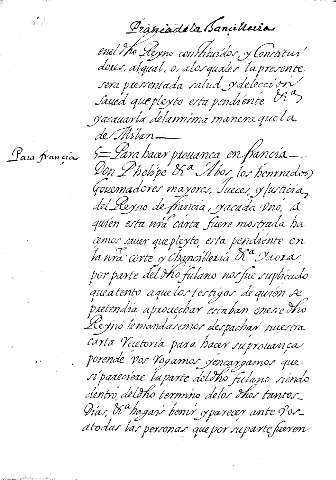 Practica de la Chancilleria
en el dho Reyno constituidos, y Constitui
dores, al qual, o, alos quales la presente
sera presentada salud y deleccion
Saued que pleyto esta pendiente &ª
y acauarla de la misma manera que la
de Milan
Para francia
Para hacer prouança en francia
Don Phelipe &ª Alos, los honrrados
Gouernadores mayores, Jueces, y Justicia
del Reyno de francia, y a cada vno, a
quien esta nrã carta fuere mostrada ha
cemos sauer que pleyto esta pendiente en
la nrã Corte y Chancilleria &ª Y aora
por parte del dho fulano nos fue suplicado
que atento a que los testigos de quien se
pretendia aprouechar estaban en ese dho
Reyno le mandasemos despachar nuestra
carta Rectoria para hacer su prouança
porende vos Rogamos y encargamos que
si pareciere la parte del dho fulano siendo
dentro del dho termino de los dhos tantos
Dias, &ª hagais benir, y parecer ante vos
a todas las personas que por su parte fueren